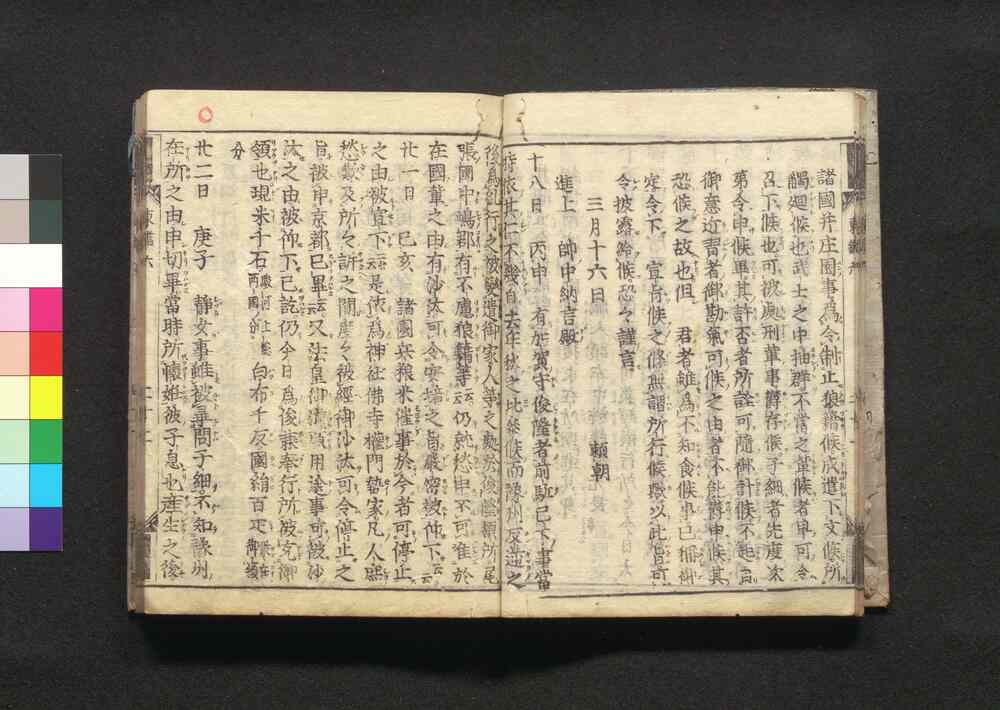 諸國并庄園事為令制止狼藉候成遣下文候所
觸廻候也武士之中抽群不當之輩候者早可令
召下候也可被處刑輩事等存候子細者先度次
第令申候畢其許否者所詮可隨御計候不起自
御意近習者御勘氣可候之由者不能尋申候其
恐候之故也但 君者雖為不知食候事已備御
定令下 宣旨候之條無謂所行候歟以此旨可
令披露給候恐々謹言
三月十六日 頼朝
進上 帥中納言殿
十八日 丙申 有加賀守俊隆者前馳已下事當
時依其仁不幾自去年秋之比祭候而豫州反逆之
後為紀行之被遣御家人等之處於俊隆領所尾
張國中嶋郡有不慮狼藉等云云仍就愁申不可准於
在國輩之由有沙汰可令安堵之旨嚴密被仰下云云
廿一日 己亥 諸國兵粮米催事於今者可停止
之由被宣下云云是依為神社佛寺權門勢家凡人庶
愁歎及所々訴之間度々被經御沙汰可令停止之
旨被申京都已畢云云又法皇御灌頂用途事可被沙
汰之由被仰下已訖仍今日為俊兼奉行所被宛御
領也現米千石駿河上總兩國分白布千反國絹百疋
分
廿二日 庚子 静女事雖被尋問子細不知豫州
在所之由申切畢當時所懐妊彼子息也産生之後